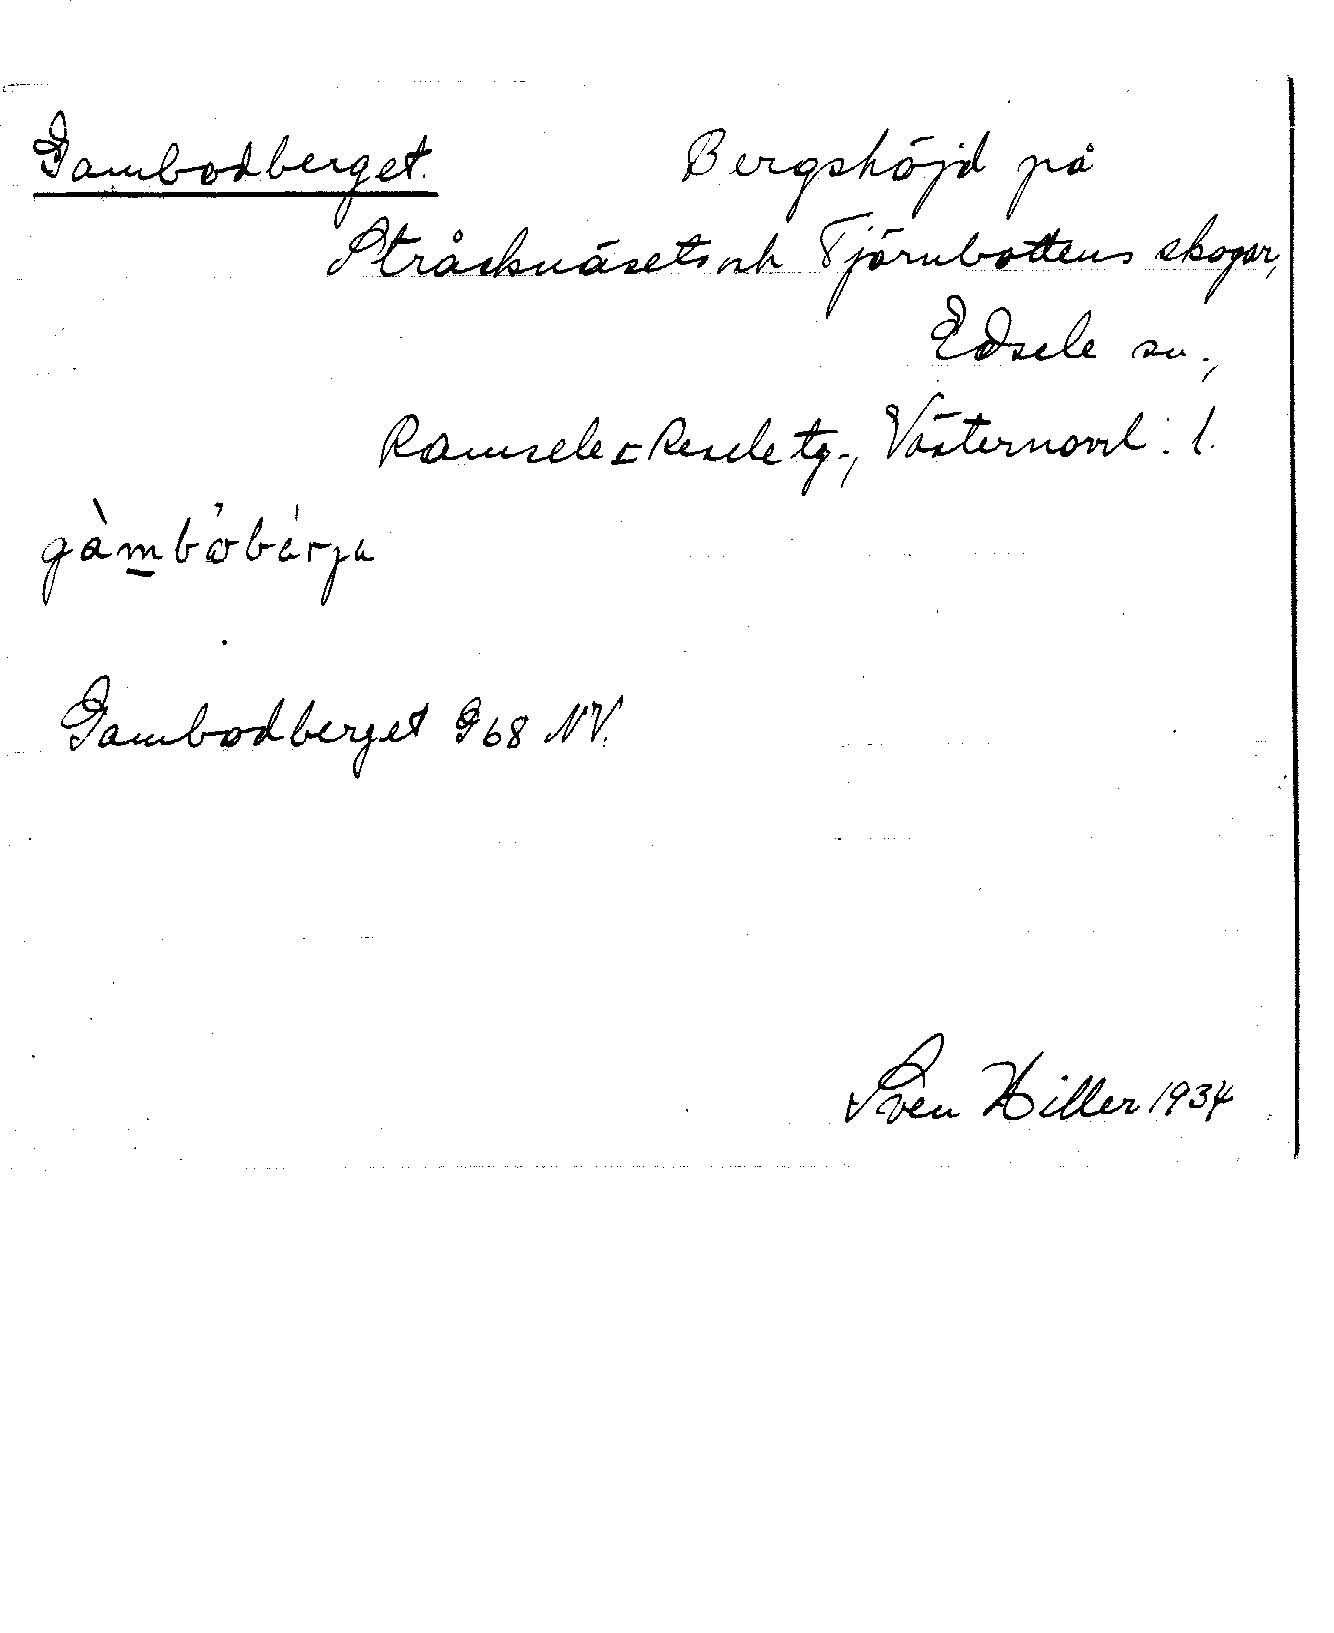 Gambodberget. Bergshöjd på
Stråsknäsets och Tjärnbottens skogar,
Edsele sn.,
Ramsele o Resele tg., Västernorrl. l.
gàmbòbárja
Gambodberget G 68 NV.
Sven Hiller 1934